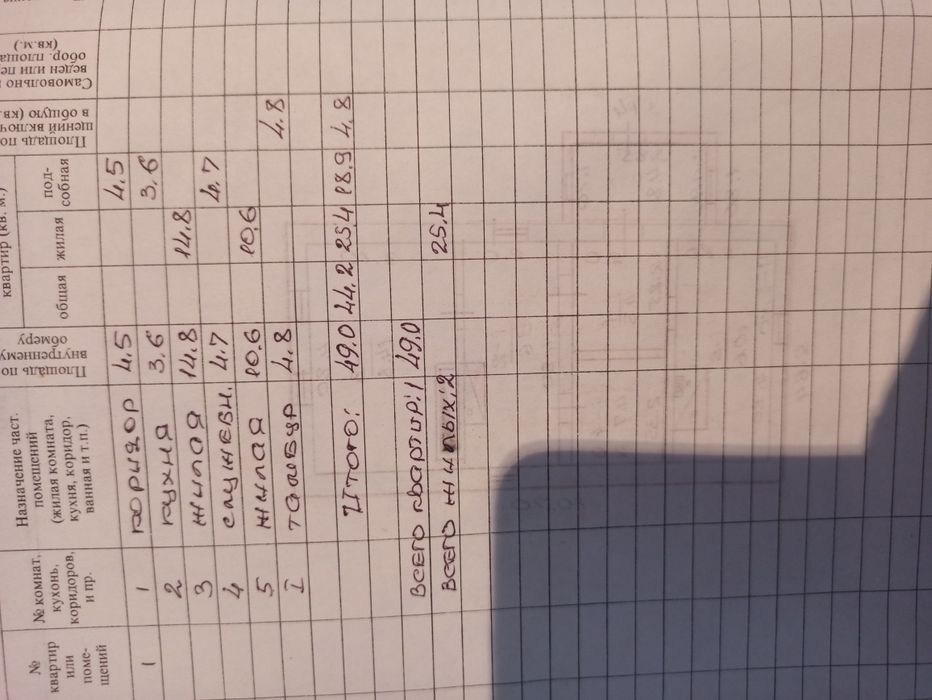 №
квартир
или
поме-
щений
№ комнат,
кухонь,
коридоров,
и пр.
Назначение част.
помещений
(жилая комната,
кухня, коридор,
ванная и т.п.)
Площадь по
внутреннему
обмеру
квартир (кв. м.)
общая
жилая
под-
собная
Площадь по
щений включ
в общую (кв.
Самовольно
веден или пе
обор. площа
(кв.м.)
1 1 коридор 4.5 4.5
2 кухня 3.6 3.6
3 жилая 14.8 14.8
4 служебн. 4.7 4.7
5 жилая 10.6 10.6
I тамбур 4.8 4.8
Итого: 49.0 44.2 25.4 18.9 4.8
всего квартир: 1 49.0
всего жилых: 2 25.4